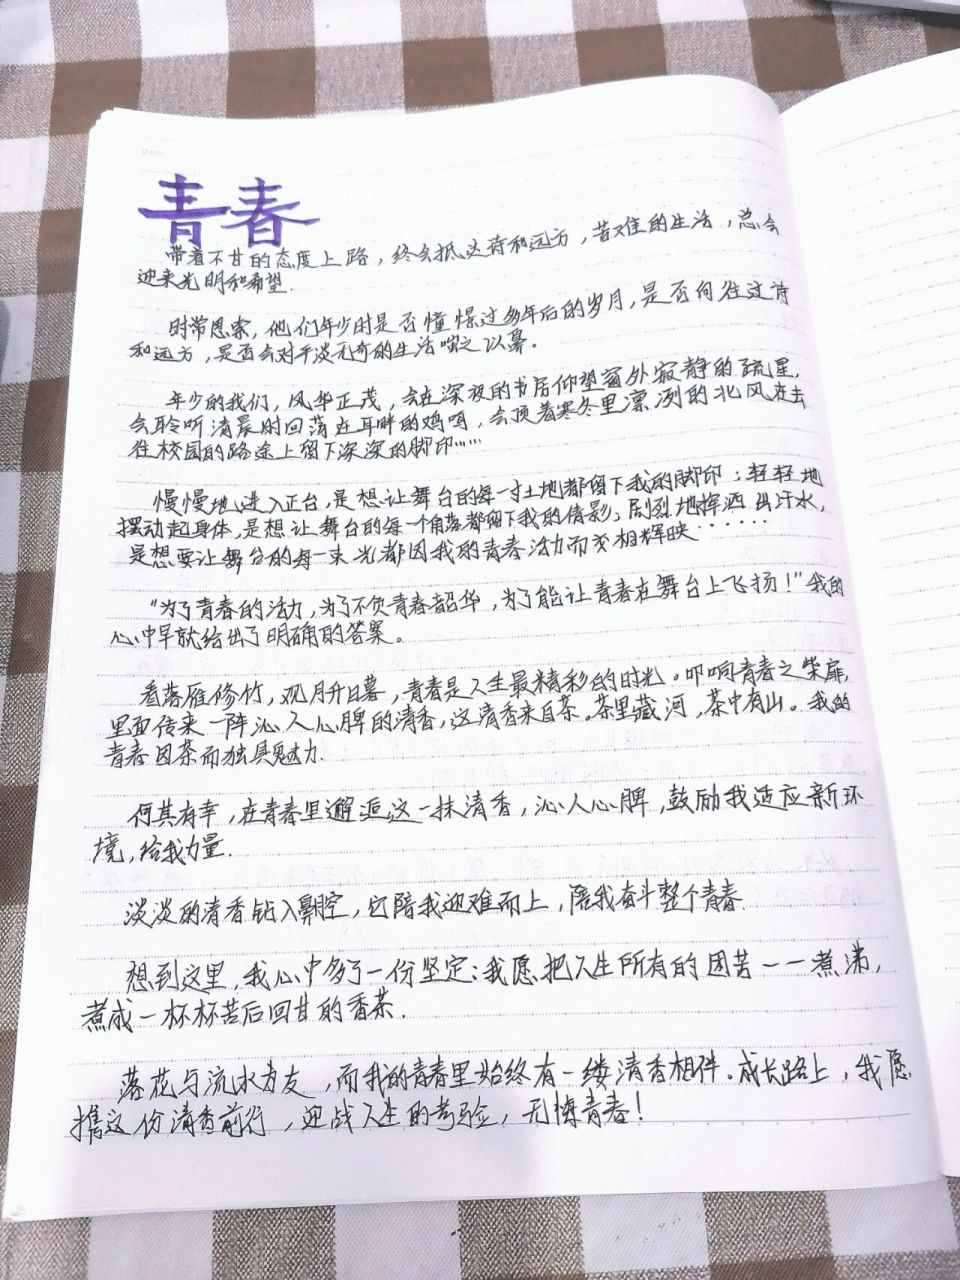 青春
带着不甘的态度上路，终会抵达诗和远方，苦难的生活，总会
迎来光明和希望.
时常思索，他们年少时是否憧憬过多年后的岁月，是否向往过诗
和远方，是否会对平淡无奇的生活嗤之以鼻。
年少的我们，风华正茂，会在深夜的书房仰望窗外寂静的疏星，
会聆听清晨时回荡在耳畔的鸡鸣，会顶着寒冬里凛冽的北风在去
往校园的路途上留下深深的脚印……
慢慢地进入正台，是想让舞台的每一寸土地都留下我的脚印；轻轻地
摆动起身体，是想让舞台的每一个角落都留下我的倩影；剧烈地挥洒出汗水，
是想要让舞台的每一束光都因我的青春活力而交相辉映······
“为了青春的活力，为了不负青春韶华，为了能让青春在舞台上飞扬！”我的
心中早就给出了明确的答案。
看落雁修竹，观月升日暮，青春是人生最精彩的时光。叩响青春之柴扉，
里面传来一阵沁人心脾的清香，这清香来自茶。茶里藏河，茶中有山。我的
青春因茶而独具魅力.
何其有幸，在青春里邂逅这一抹清香，沁人心脾，鼓励我适应新环
境，给我力量.
淡淡的清香钻入鼻腔，它陪我迎难而上，陪我奋斗整个青春.
想到这里，我心中多了一份坚定：我愿把人生所有的困苦一一煮沸，
煮成一杯杯苦后回甘的香茶.
落花与流水为友，而我的青春里始终有一缕清香相伴。成长路上，我愿
携这份清香前行，迎战人生的考验，无悔青春！